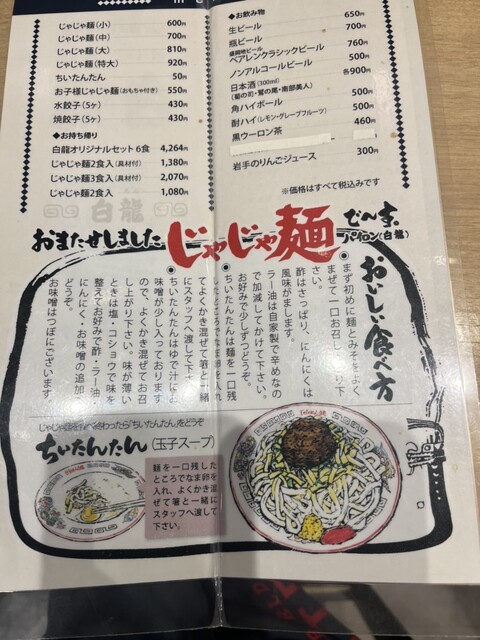 じゃじゃ麺（小） 600円
じゃじゃ麺（中） 700円
じゃじゃ麺（大） 810円
じゃじゃ麺（特大） 920円
ちいたんたん 50円
お子様じゃじゃ麺（おもちゃ付き） 550円
水餃子（5ヶ） 430円
焼餃子（5ヶ） 430円
◆お持ち帰り
白龍オリジナルセット 6食 4,264円
じゃじゃ麺2食入（具材付） 1,380円
じゃじゃ麺3食入（具材付） 2,070円
じゃじゃ麺2食入 1,080円
◆お飲み物
生ビール 650円
瓶ビール 700円
盛岡地ビール
ベアレンクラシックビール 760円
ノンアルコールビール 500円
日本酒（300ml） 各900円
（菊の司・鷲の尾・南部美人）
角ハイボール 500円
酎ハイ（レモン・グレープフルーツ） 500円
黒ウーロン茶 460円
岩手のりんごジュース 300円
※価格はすべて税込みです
白龍
おまたせしました
じゃじゃ麺
で〜す。
パイロン（白龍）
おいしい食べ方
●まず初めに麺とみそをよく
まぜて一口お召し上り下
さい。
酢はさっぱり、にんにくは
風味がまします。
ラー油は自家製で辛めなの
で加減してかけて下さい。
お好みで少しずつどうぞ。
●ちいたんたんは麺を一口残
したところでなま卵を入れ
てよくかき混ぜて箸と一緒
にスタッフへ渡して下さい。
●ちいたんたんはゆで汁にお
味噌が少し入っております
ので、よくかき混ぜてお召
し上がり下さい。味が薄い
ときは塩・コショウで味を
整えてお好みで酢・ラー油・
にんにく、お味噌の追加を
どうぞ。
お味噌はつぼにございます。
じゃじゃ麺を食べ終わったら「ちいたんたん」をどうぞ
ちぃたんたん（玉子スープ）
麺を一口残した
ところでなま卵を
入れ、よくかき混
ぜて箸と一緒に
スタッフへ渡して
下さい。